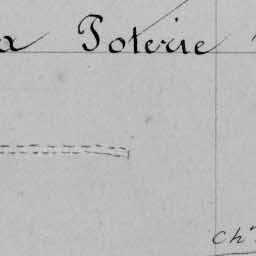 a Poterie
Chⁿ